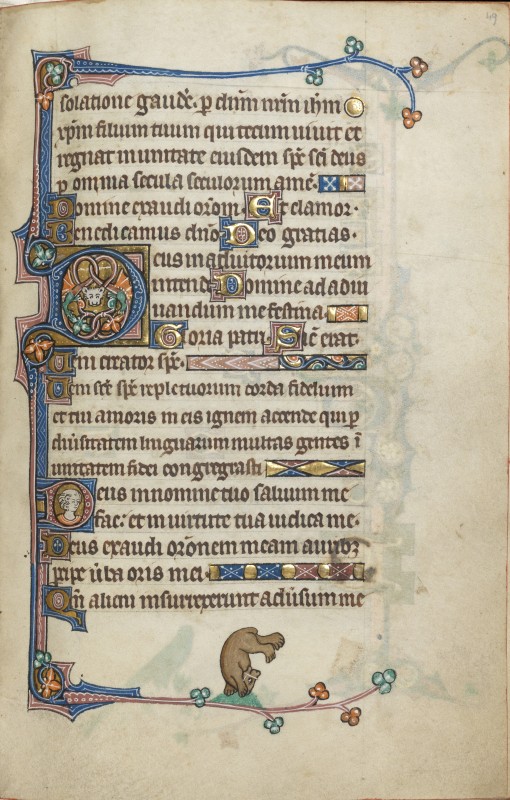 49
solatione gaude. p dnm nrm ihm
xpm filium tuum qui tecum uiuit et
regnat in unitate eiusdem spc sci deus
p omnia secula seculorum ame.
Domine exaudi orom. Et clamor.
Benedicamus dno Deo gratias.
Deus in adiutorium meum
intende Domine ad adiu
uandum me festina
Gloria patri. Sic erat.
Ueni creator spc.
Ueni sce spc reple tuorum corda fidelium
et tui amoris in eis ignem accende qui p
diusitatem linguarum multas gentes i
unitatem fidei congregasti
Deus in nomine tuo saluum me
fac: et in uirtute tua iudica me.
Deus exaudi oronem meam aurib3
pcipe uba oris mei.
Qm alieni insurrexerunt aduisum me